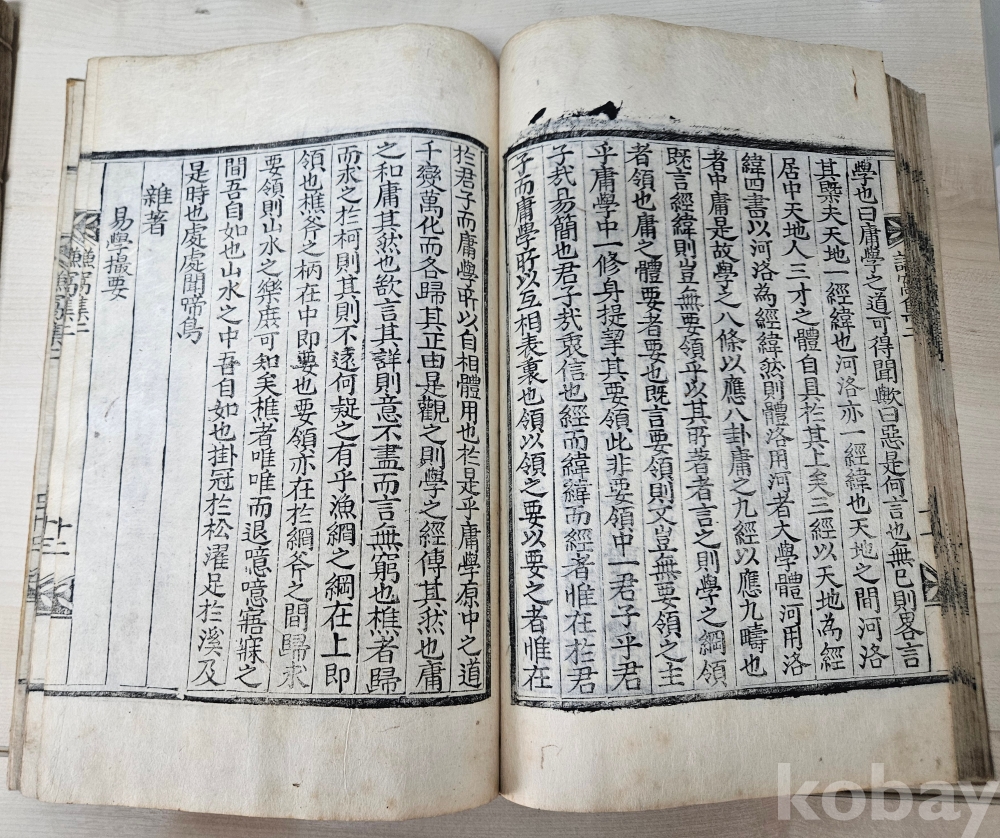 學也曰庸學之道可得聞歟曰惡是何言也無已則畧言
其槩夫天地一經緯也河洛亦一經緯也天地之間河洛
居中天地人三才之體自具於其上矣三經以天地為經
緯四書以河洛為經緯然則體洛用河者大學體河用洛
者中庸是故學之八條以應八卦庸之九經以應九疇也
旣言經緯則豈無要領乎以其所著者言之則學之綱領
者領也庸之體要者要也旣言要領則文豈無要領之主
乎庸學中一修身提挈其要領此非要領中一君子乎君
子㢤易簡也君子㢤衷信也經而緯緯而經者惟在於君
子而庸學所以互相表裏也領以領之要以要之者惟在
於君子而庸學所以自相體用也於是乎庸學原中之道
千變萬化而各歸其正由是觀之則學之經傳其然也庸
之和庸其然也欲言其詳則意不盡而言無窮也樵者歸
而求之於柯則其則不遠何疑之有乎漁綱之綱在上即
領也樵斧之柄在中即要也要領亦在於綱斧之間歸求
要領則山水之樂庶可知矣樵者唯唯而退噫噫寤寐之
間吾自如也山水之中吾自如也掛冠於松濯足於溪及
是時也處處聞啼鳥
雜著
易學撮要
窩集二
十二